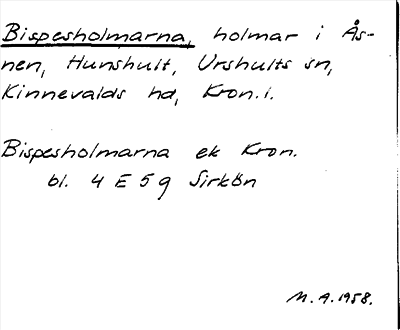 Bispesholmarna, holmar i Ås-
nen, Hunshult, Urshults sn,
Kinnevalds hd, Kron.l.
Bispesholmarna ek Kron.
bl. 4 E 5 g Sirkön
M. A. 1958.